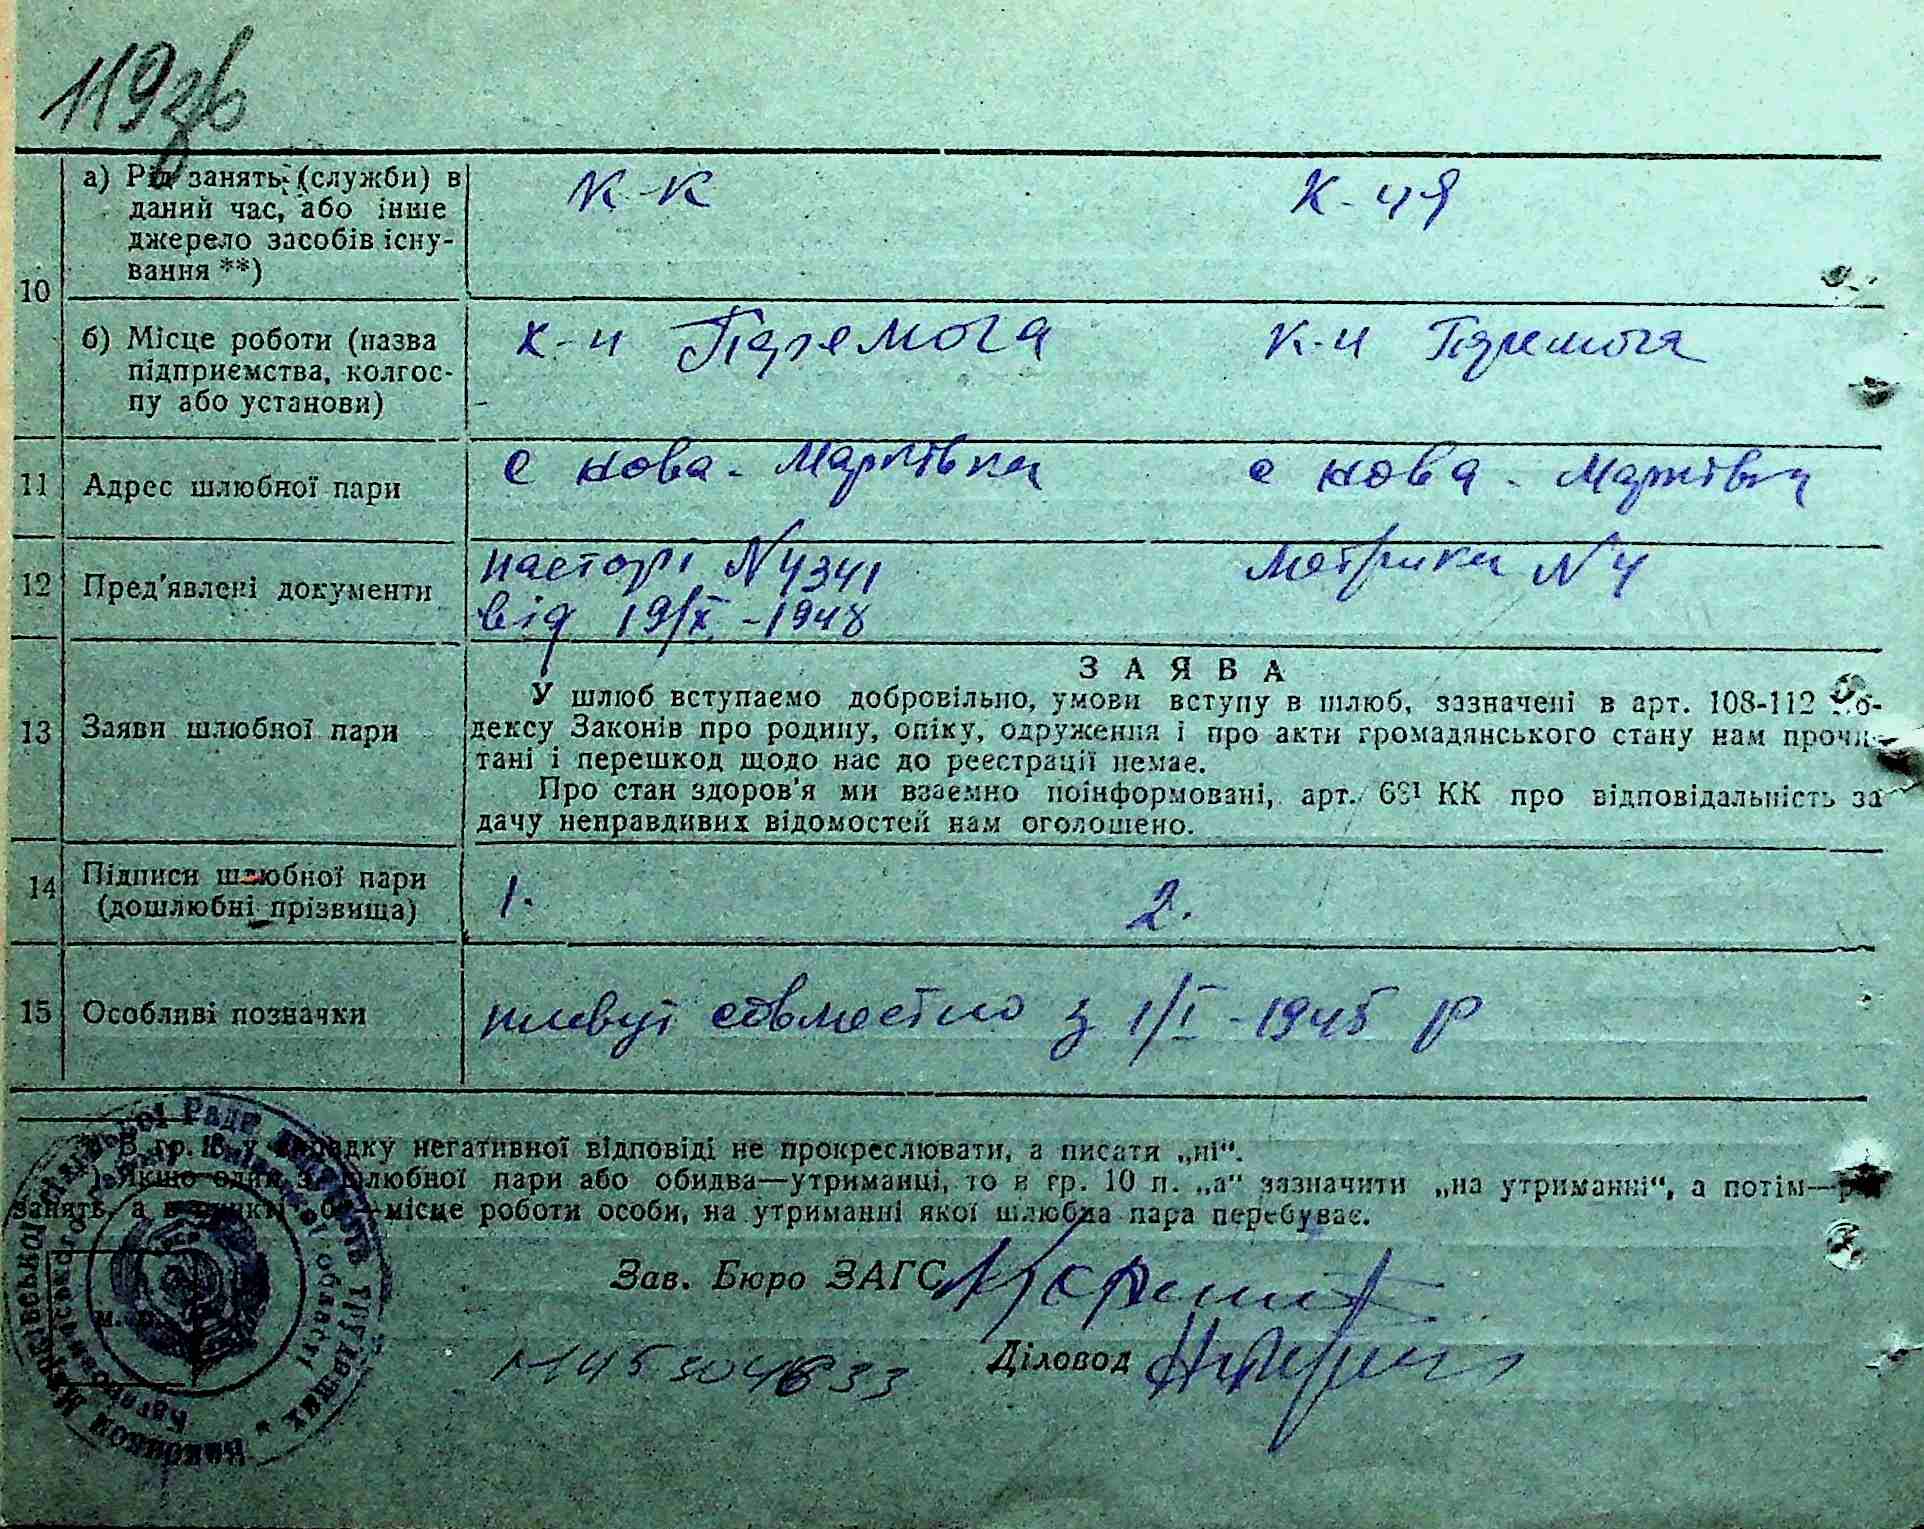 119зв
10
а) Рід занять (служби) в
даний час, або інше
джерело засобів існу-
вання **)
К-К
К-ця
б) Місце роботи (назва
підприємства, колгос-
пу або установи)
к-п Перемога
к-п Перемога
11
Адрес шлюбної пари
с Нова-Марківка
с Нова-Марківка
12
Пред'явлені документи
паспорт N4341
від 19/X-1948
Метрика N4
13
Заяви шлюбної пари
ЗАЯВА
У шлюб вступаємо добровільно, умови вступу в шлюб, зазначені в арт. 108-112 Ко-
дексу Законів про родину, опіку, одруження і про акти громадянського стану нам прочи-
тані і перешкод щодо нас до реєстрації немає.
Про стан здоров'я ми взаємно поінформовані, арт. КК про відповідальність за
дачу неправдивих відомостей нам оголошено.
14
Підписи шлюбної пари
(дошлюбні прізвища)
1.
2.
15
Особливі позначки
живут совместно з 1/I-1945 р
В гр. у випадку негативної відповіді не прокреслювати, а писати „ні“.
Якщо один з шлюбної пари або обидва—утриманці, то в гр. 10 п. „а“ зазначити „на утриманні“, а потім—рід
занять, а в пункті „б“—місце роботи особи, на утриманні якої шлюбна пара перебуває.
Зав. Бюро ЗАГС
Діловод
м. п.
сільської Ради депутатів трудящих * Виконком
Київської області